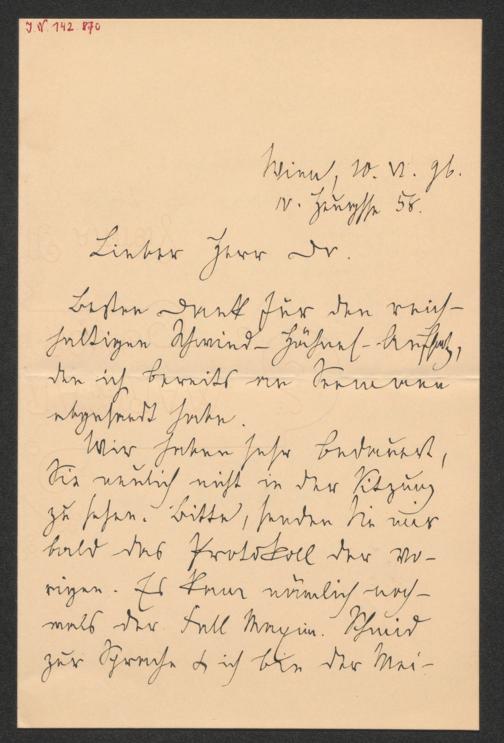 J.N. 142.870
Wien, 10. VI. 96.
IV. Heugasse 58.
Lieber Herr Dr.
Besten Dank für den reich-
haltigen Schwind-Hähnel-Aufsatz,
den ich bereits an Seemann
abgesandt habe.
Wir haben sehr bedauert,
Sie neulich nicht in der Sitzung
zu sehen. Bitte, senden Sie mir
bald das Protokoll der vo-
rigen. Es kam nämlich noch-
mals der Fall Maxim. Schmid
zur Sprache & ich bin der Mei-